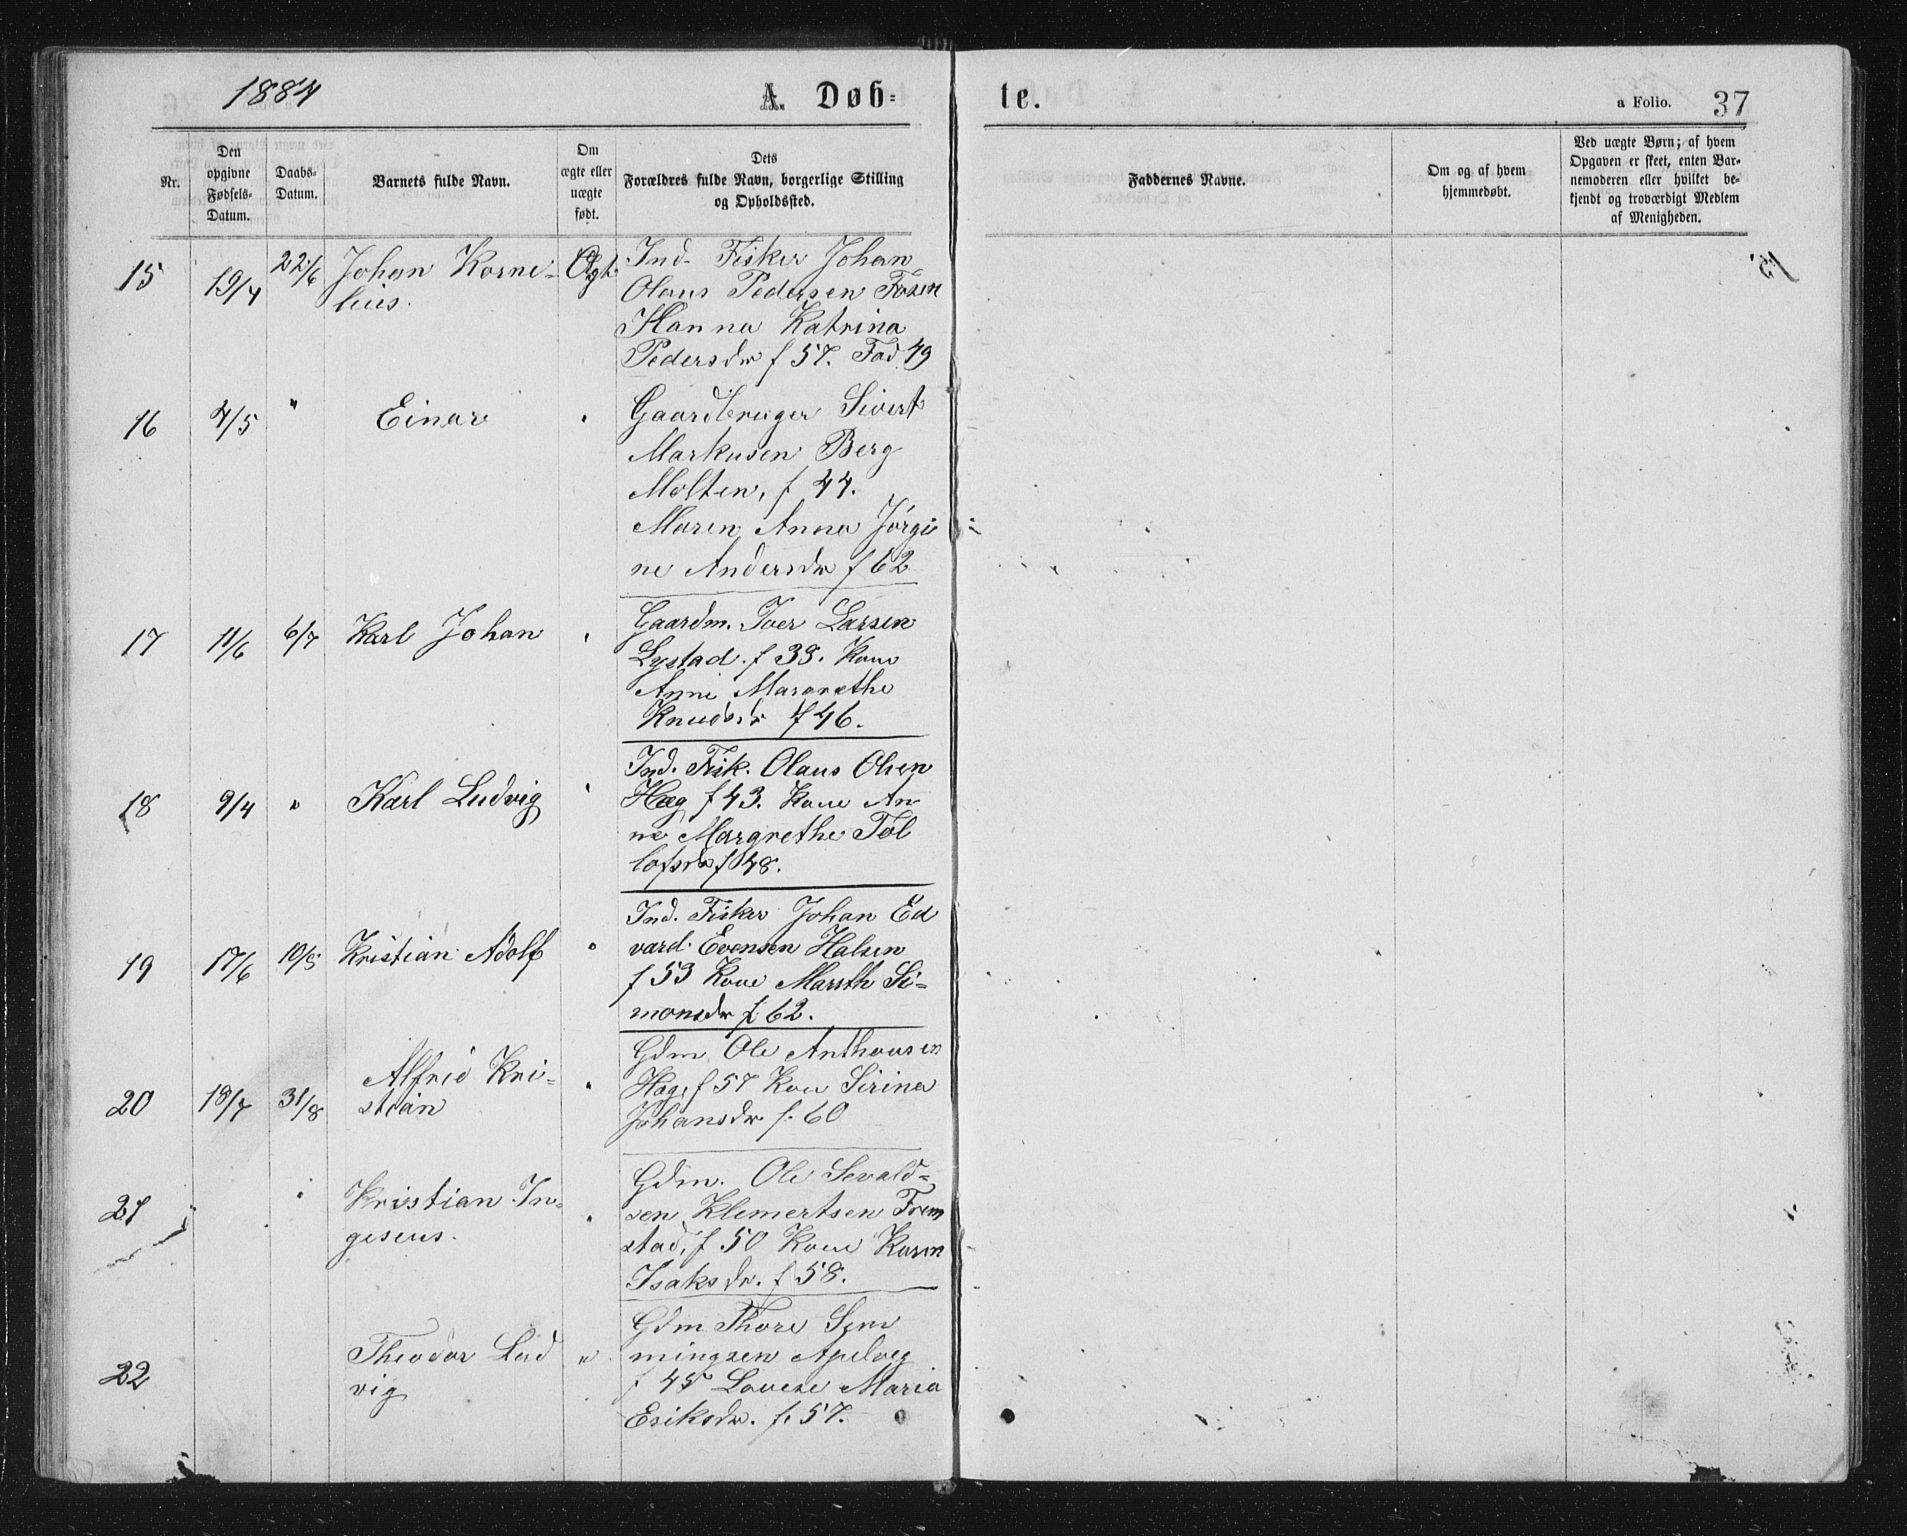 1884
A. Døb-
te.
a Folio. 37
Nr.
Den opgivne Fødsels-Datum.
Daabs-Datum.
Barnets fulde Navn.
Om ægte eller uægte født.
Dets Forældres fulde Navn, borgerlige Stilling og Opholdssted.
Faddernes Navne.
Om og af hvem hjemmedøbt.
Ved uægte Børn; af hvem Opgaven er skeet, enten Barnemoderen eller hvilket bekjendt og troværdigt Medlem af Menigheden.
15 19/4 22/6 Johan Korne- Ægte Ind. Fisker Johan
lius. Olaus Pedersen Fosen
Hanna Katrina
Pedersdr f 57. Fad 49
16 4/5 " Einar " Gaardbruger Sivert
Markusen Berg
Molten, f 44.
Maren Anna Jørgi
ne Andersdr f 62
17 11/6 6/7 Karl Johan " Gaardm. Iver Larsen
Lystad. f 38. Kone
Anne Margrethe
Knudsdr f 46.
18 9/4 " Karl Ludvig " Ind. Fisk. Olaus Olsen
Hæg f 43. Kone An-
ne Margrethe Tol
lofsdr f 48.
19 17/6 10/8 Kristian Adolf " Ind. Fisker Johan Ed
vard Evensen Halsen
f 53 Kone Marsth Si-
monsdr f 62.
20 18/7 31/8 Alfred Kri- " Gdm. Ole Anthonsen
stian f 57 Kone Sirina
Johansdr f. 60
21 " Kristian In- " Gdm. Ole Sevald-
sen Klemertsen Frem
stad, f 50 Kone Karen
Isaksdr. f 58.
22 Theodor Lud " Gdm Thore Sem
vig mingsen
f 45 Lovise Maria
Eriksdr. f. 57.